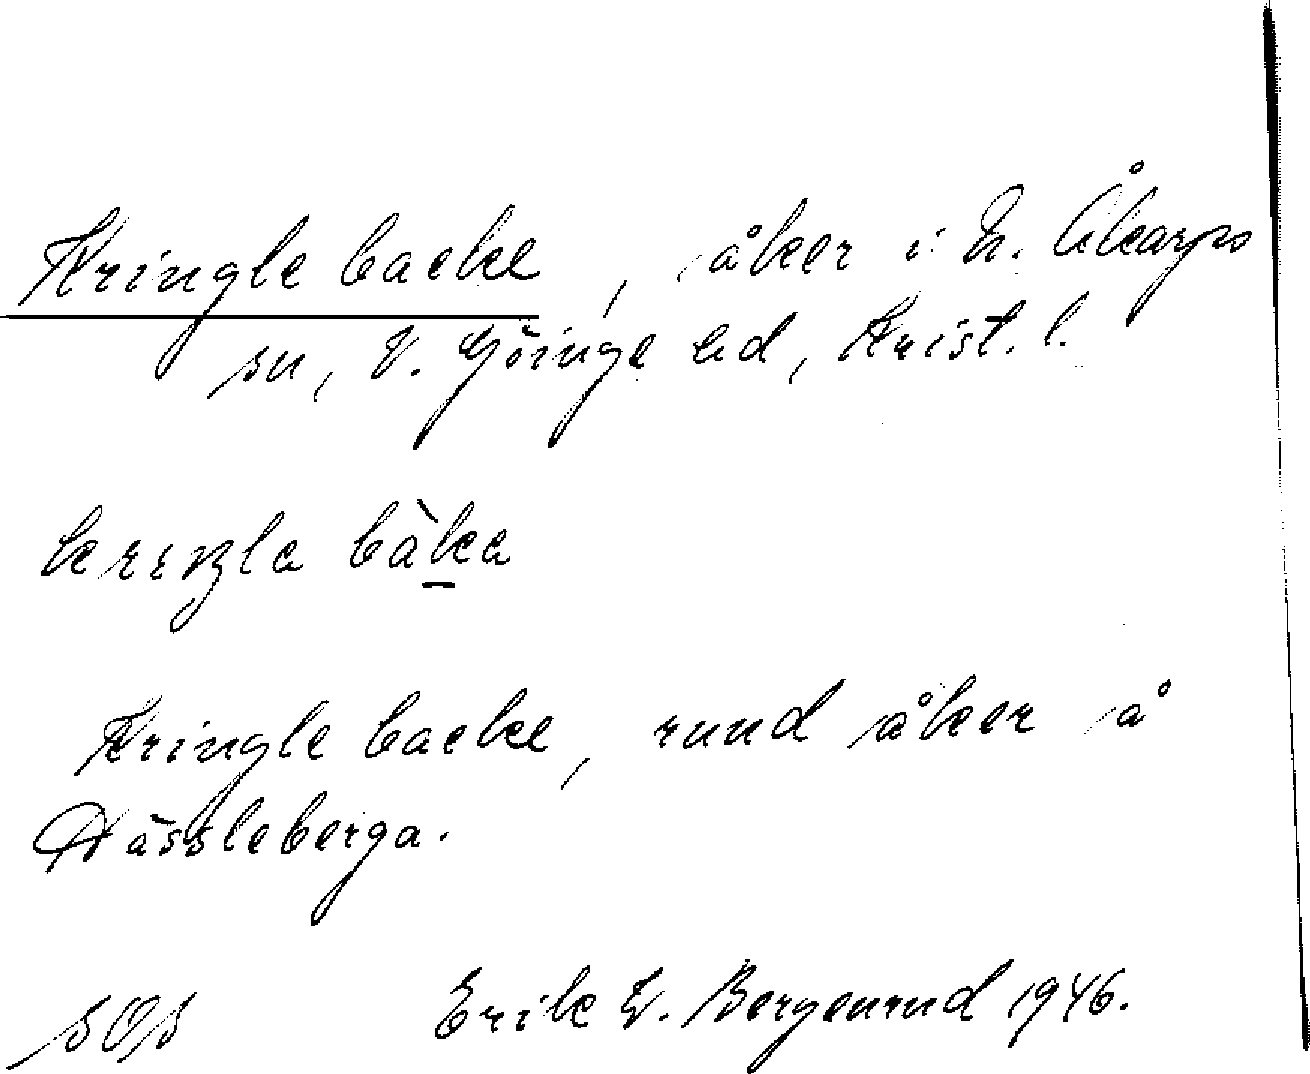 Kringle backe, åker i N. Åkarps
sn, V. Göinge hd, Krist. l.
Kringle backe, rund åker å
Hässleberga.
SOS Erik W. Bergenrud 1946.